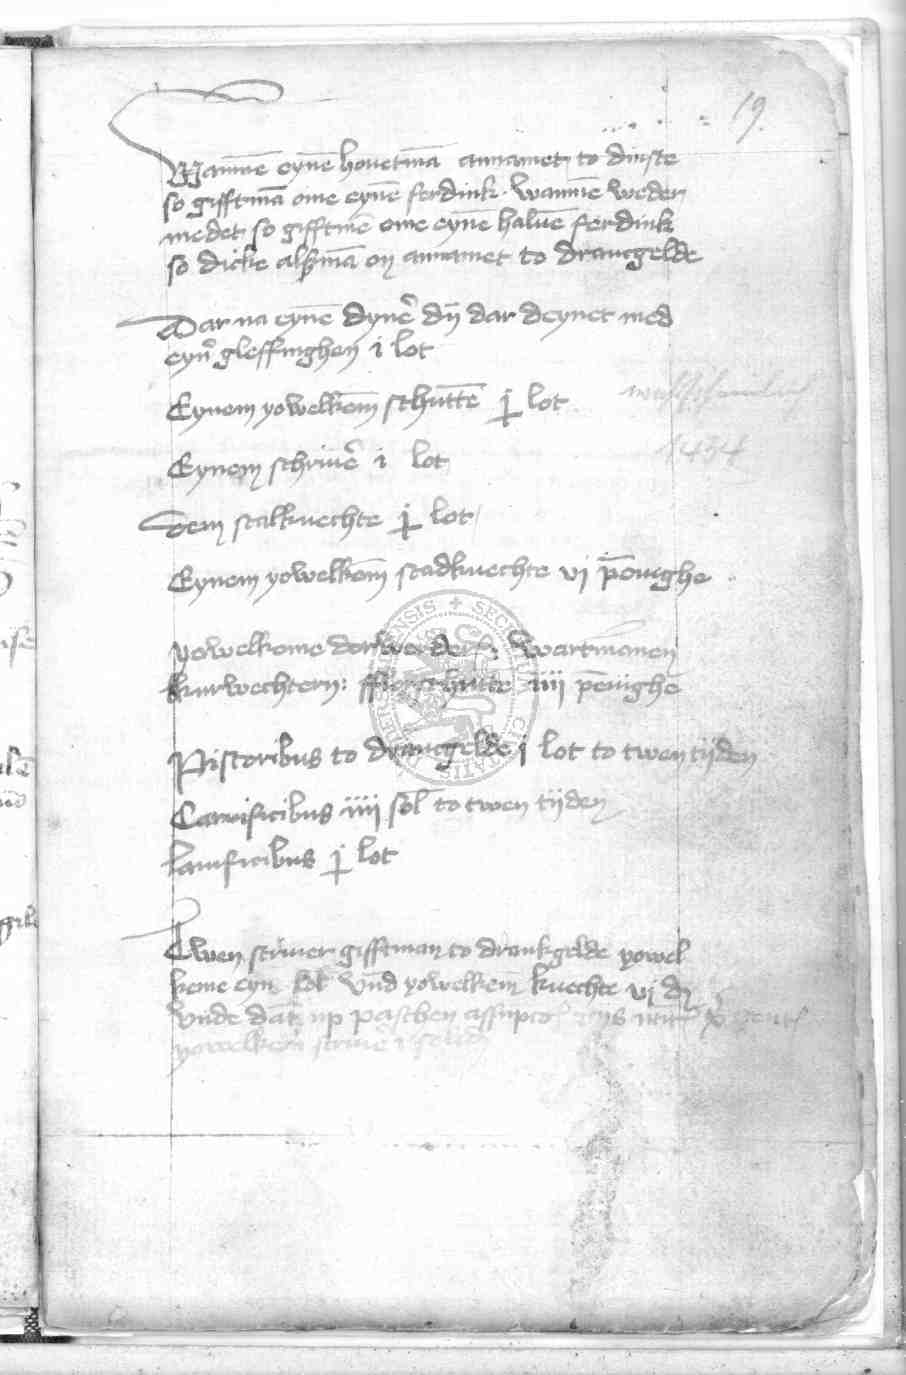 19
Wanne̅ eyne̅ houetma̅ annamet to dinste
so gifftma̅ ome eyne̅ ferdink. Wanne̅ weder
medet so gifftme̅ ome eyne̅ halue̅ ferdink
so dicke alszma̅ on annamet to dranegelde
Dar na eyne̅ dyner dy dar deynet med
eyner gleffinghen i lot
Eynem yowelkem̅ schutte̅ j lot
1434
Eynem schriuer i lot
Dem stalknechte j lot
Eynem yowelkem̅ stadknechte vj pe̅nighe
yowelkeme dorwerder: Wartmanen
kurwechtern: schutte iiij pe̅nighe
Pistoribus to dranegelde j lot to twen tijden
Carnificibus iiij sol̅ to twen tijden
lanificibus j lot
Twen scriuer gifftman to drankgelde yowel
keme eyn lot vnd yowelkem̅ knechte vj d
vnde dat up paschen assu̅pcio̅
yowelkem̅ scriue̅ i